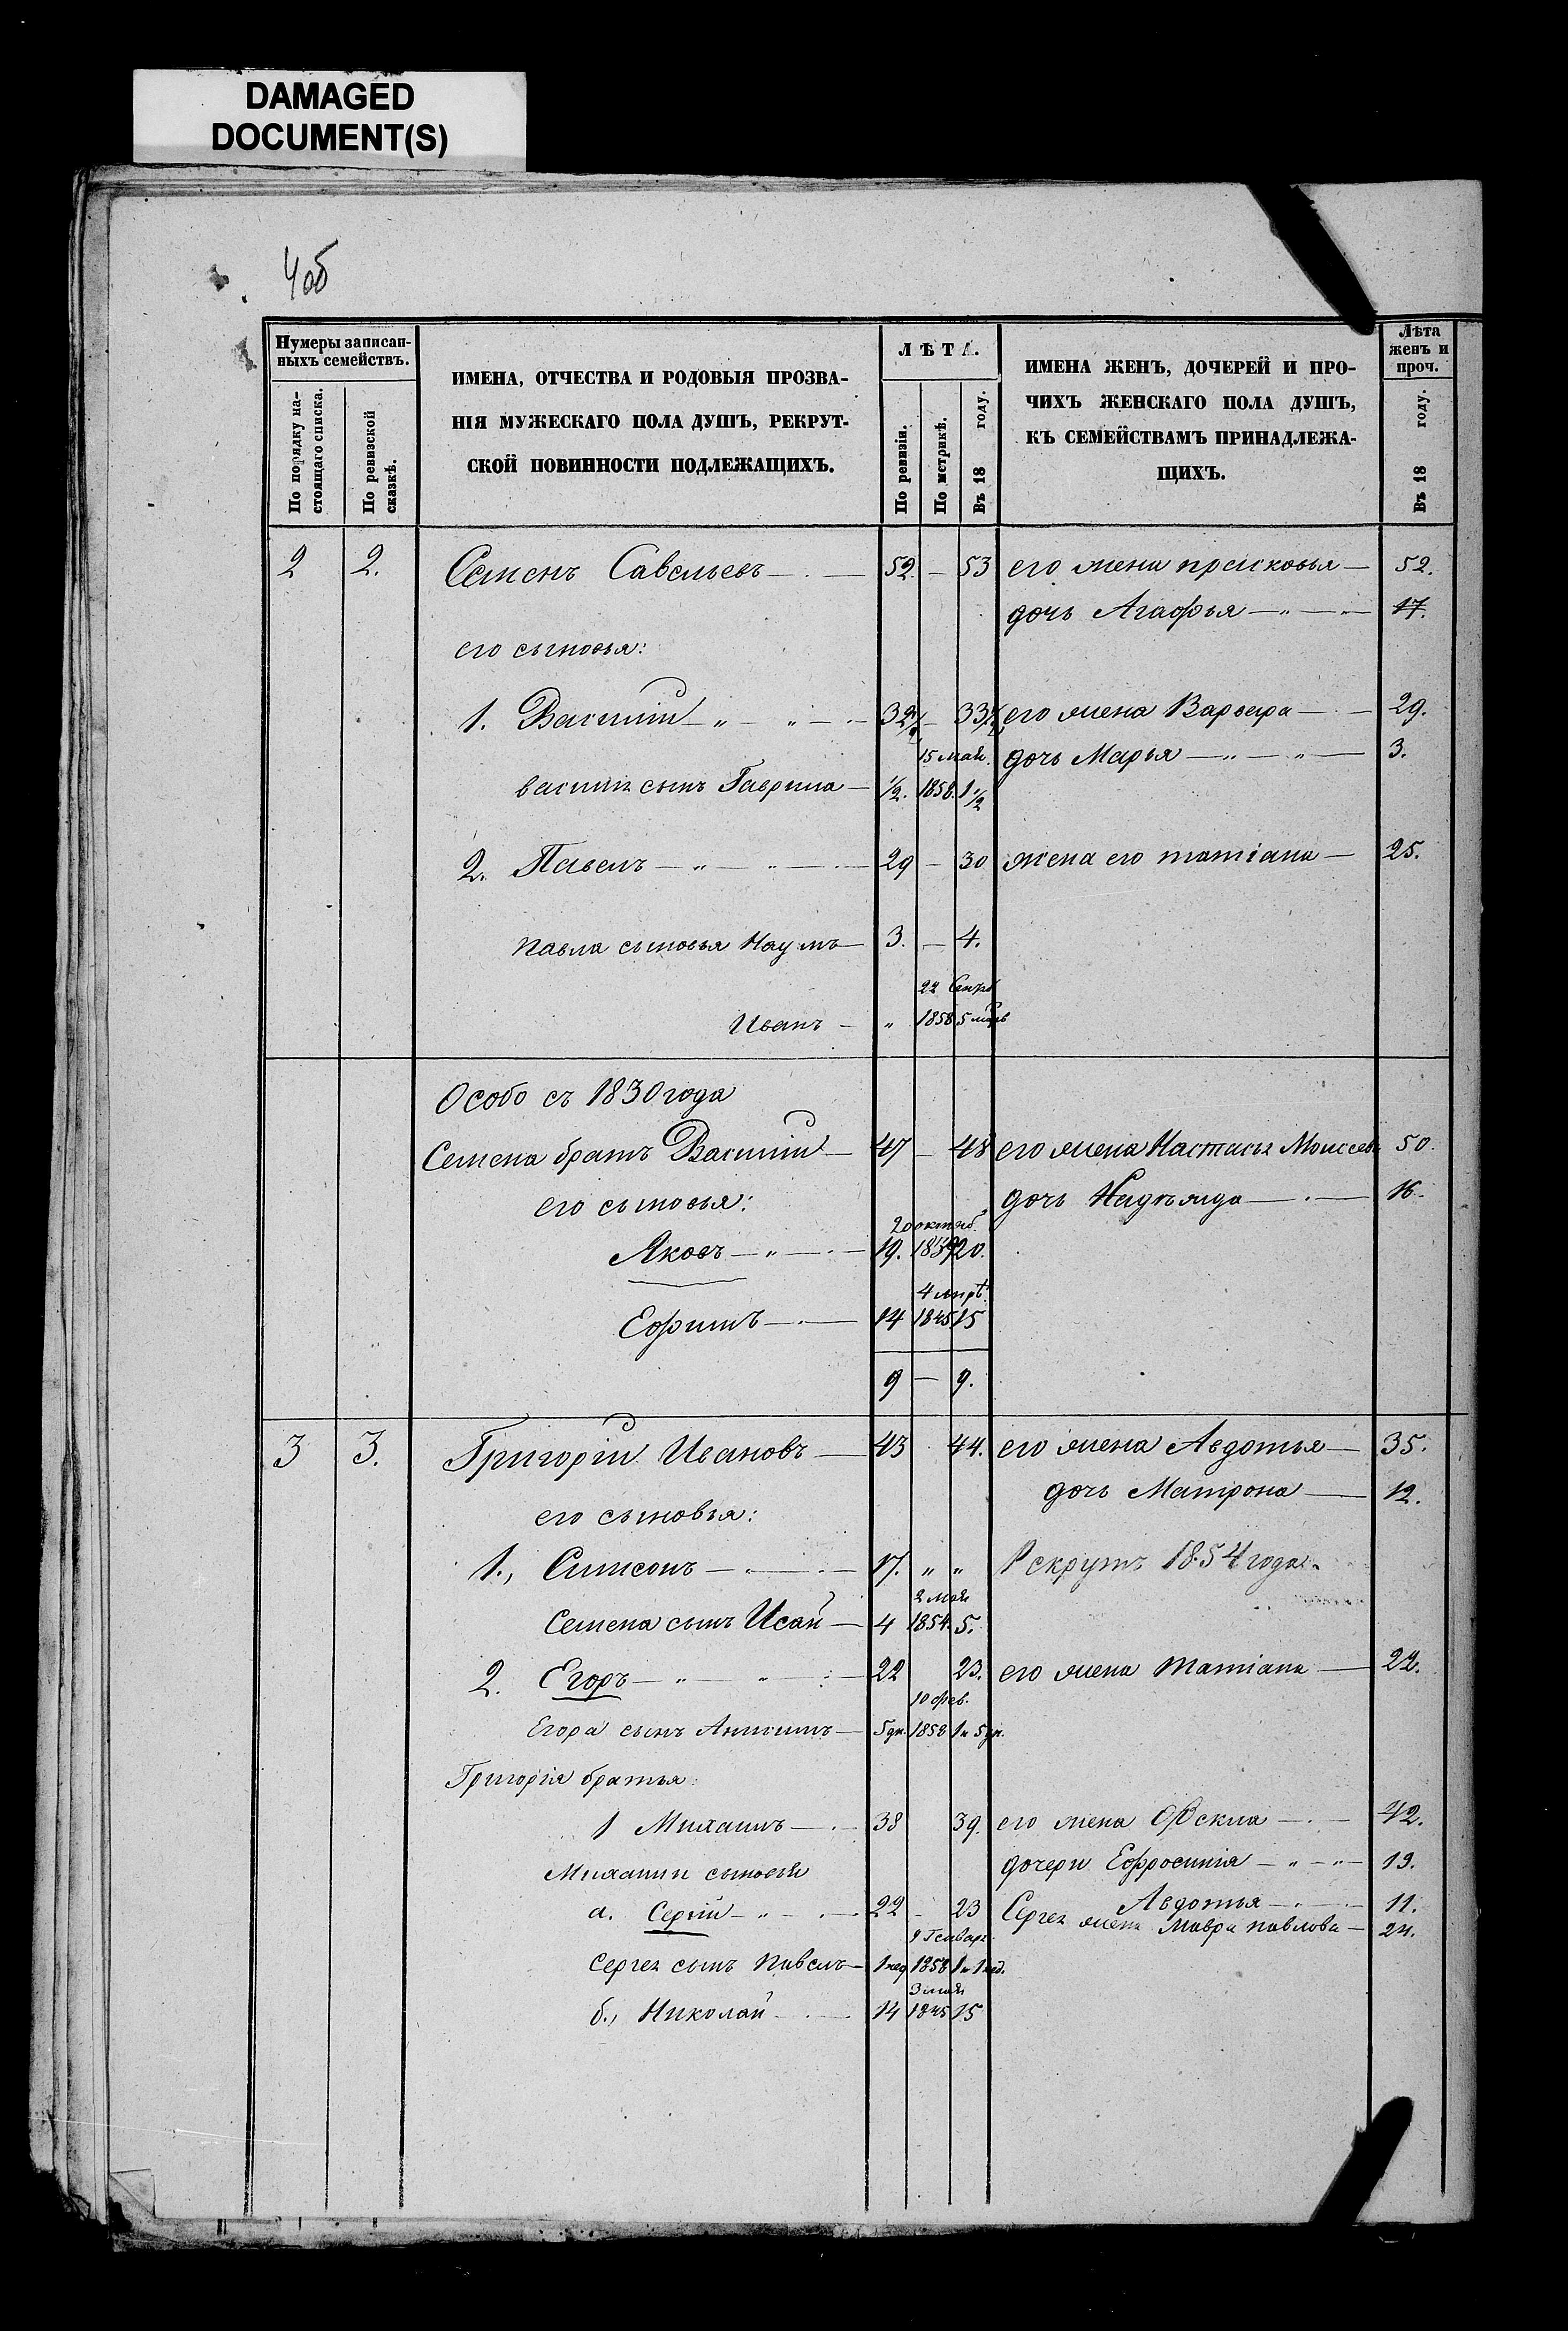 DAMAGED
DOCUMENT(S)
4об
Нумеры записан-
ныхъ семействъ.
По порядку на-
стоящаго списка.
По ревизской
сказкѣ.
ИМЕНА, ОТЧЕСТВА И РОДОВЫЯ ПРОЗВА-
НІЯ МУЖЕСКАГО ПОЛА ДУШЪ, РЕКРУТ-
СКОЙ ПОВИННОСТИ ПОДЛЕЖАЩИХЪ.
ЛѢТА.
По ревизіи.
По метрикѣ.
Въ 18 году.
ИМЕНА ЖЕНЪ, ДОЧЕРЕЙ И ПРО-
ЧИХЪ ЖЕНСКАГО ПОЛА ДУШЪ,
КЪ СЕМЕЙСТВАМЪ ПРИНАДЛЕЖА-
ЩИХЪ.
Лѣта
женъ и
проч.
Въ 18 году.
2 2. Семенъ Савельевъ — 52. — 53 его жена прасковья — 52.
дочь Агафья — 17.
его сыновья:
1. Василій — 32 — 33 его жена Варвара — 29.
15 мая. дочь Марья — 3.
васильи сынъ Гаврила — 1/2. 1858. 1 1/2
2. Павелъ — 29 — 30 жена его татіана — 25.
павла сыновья Наумъ — 3. — 4.
22 Сентяб
Иванъ — " 1858 5 мцов
Особо съ 1830 года
Семена братъ Василій — 47 — 48 его жена Настасья Моисеева 50.
его сыновья: дочь Надѣжда — 16.
20 октяб.
Яковъ — 19. 1839 20.
4 апрѣ.
Ефимъ — 14 1845 15
9 — 9.
3 3. Григорій Ивановъ — 43 44. его жена Авдотья — 35.
дочь Матрона — 12.
его сыновья:
1., Симеонъ — 17. " " Рекрутъ 1854 года.
2 мая
Семена сынъ Исай — 4 1854. 5.
2. Егоръ — 22 23. его жена татіана — 22.
10 фев.
Егора сынъ Анисимъ — 5 дн. 1858 1 и 5 дн.
Григорія братья:
1 Михаилъ — 38 39. его жена Ѳекла — 42.
Михаила сыновья дочери Ефросинія — 19.
Авдотья — 11.
а. Сергій — 22 — 23 Сергея жена Мавра павлова — 24.
9 Генваря
Сергея сынъ павелъ — 1 нед 1858 1 и 1 нед.
3 мая
б., Николай — 14 1845 15